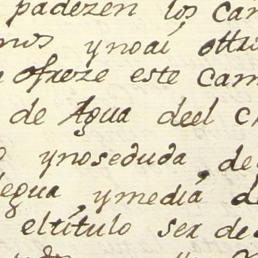 padezen los can
nos ynoai ottr
ofreze este cam
de Agua deel c
ynoseduda, de
legua, ymedia de
eltitulo ser de